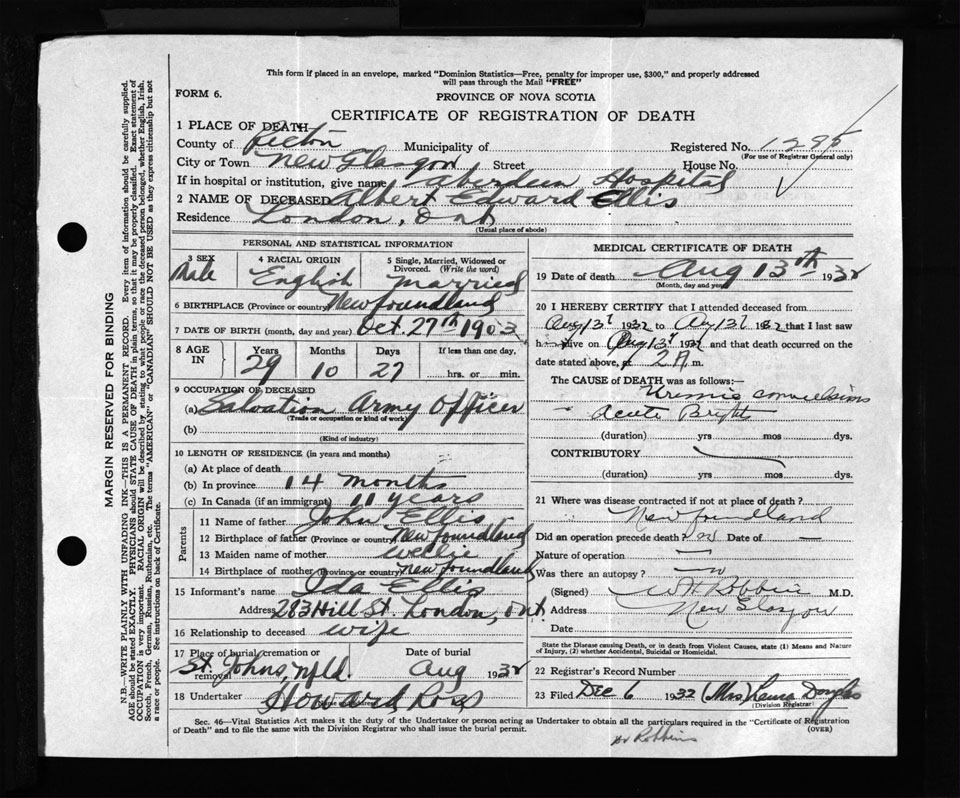 This form if placed in an envelope, marked "Dominion Statistics—Free, penalty for improper use, $300," and properly addressed
will pass through the Mail "FREE"
FORM 6.
PROVINCE OF NOVA SCOTIA
CERTIFICATE OF REGISTRATION OF DEATH
1 PLACE OF DEATH
County of Pictou Municipality of Registered No. 1295
(For use of Registrar General only)
City or Town New Glasgow Street House No.
If in hospital or institution, give name Aberdeen Hospital
2 NAME OF DECEASED Albert Edward Ellis
Residence London, Ont
(Usual place of abode)
PERSONAL AND STATISTICAL INFORMATION
3 SEX 4 RACIAL ORIGIN 5 Single, Married, Widowed or
Divorced. (Write the word)
Male English Married
6 BIRTHPLACE (Province or country) Newfoundland
7 DATE OF BIRTH (month, day and year) Oct. 27th 1903
8 AGE IN Years Months Days If less than one day,
29 10 27 hrs. or min.
9 OCCUPATION OF DECEASED
(a) Salvation Army Officer
(Trade or occupation or kind of work)
(b)
(Kind of industry)
10 LENGTH OF RESIDENCE (in years and months)
(a) At place of death
(b) In province 14 months
(c) In Canada (if an immigrant) 11 years
Parents
11 Name of father John Ellis
12 Birthplace of father (Province or country) Newfoundland
13 Maiden name of mother
14 Birthplace of mother (Province or country) Newfoundland
15 Informant's name Ida Ellis
Address 283 Hill St. London, Ont.
16 Relationship to deceased wife
17 Place of burial, cremation or Date of burial
removal St. Johns, Nfld. Aug 1932
18 Undertaker Howard Ross
MEDICAL CERTIFICATE OF DEATH
19 Date of death Aug 13th 1932
(Month, day and year)
20 I HEREBY CERTIFY that I attended deceased from
Aug 13th 1932 to Aug 13th 1932 that I last saw
h alive on Aug 13th 1932 and that death occurred on the
date stated above, at 2 A. m.
The CAUSE of DEATH was as follows:—
Uremic convulsions
— Acute Brights
(duration) yrs mos dys.
CONTRIBUTORY
(duration) yrs mos dys.
21 Where was disease contracted if not at place of death?
Newfoundland
Did an operation precede death? no Date of —
Nature of operation —
Was there an autopsy? — no
(Signed) WH Robbins M.D.
Address New Glasgow
Date
State the Disease causing Death, or in death from Violent Causes, state (1) Means and Nature
of Injury, (2) whether Accidental, Suicidal or Homicidal.
22 Registrar's Record Number
23 Filed Dec 6 1932 (Mrs) Laura Douglas
(Division Registrar)
Sec. 46—Vital Statistics Act makes it the duty of the Undertaker or person acting as Undertaker to obtain all the particulars required in the "Certificate of Registration
of Death" and to file the same with the Division Registrar who shall issue the burial permit. (OVER)
Dr Robbins
MARGIN RESERVED FOR BINDING
N.B.—WRITE PLAINLY WITH UNFADING INK—THIS IS A PERMANENT RECORD. Every item of information should be carefully supplied.
AGE should be stated EXACTLY. PHYSICIANS should STATE CAUSE OF DEATH in plain terms, so that it may be properly classified. Exact statement of
OCCUPATION is very important. RACIAL ORIGIN will be described by stating to what people or race the deceased person belonged, whether English, Irish,
Scotch, French, German, Russian, Ruthenian, etc. The terms "AMERICAN" or "CANADIAN" SHOULD NOT BE USED as they express citizenship but not
a race or people. See instructions on back of Certificate.